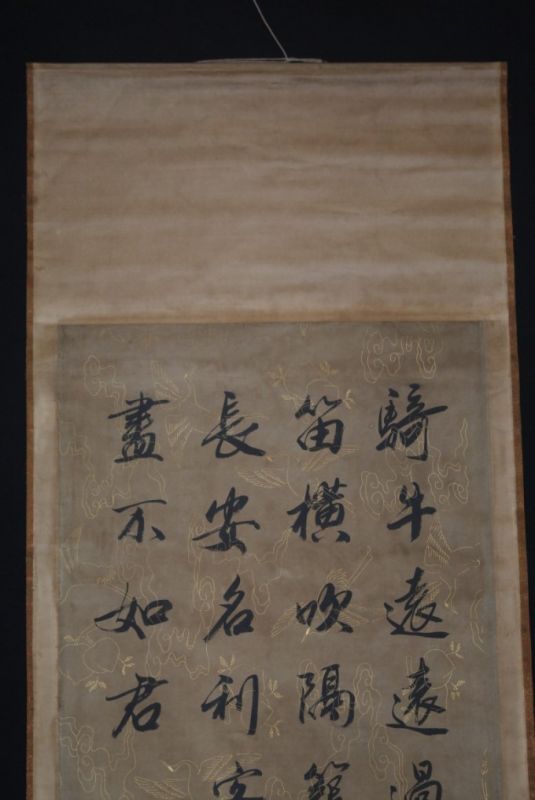 騎牛遠遠過
笛橫吹隔
長安名利客
盡不如君